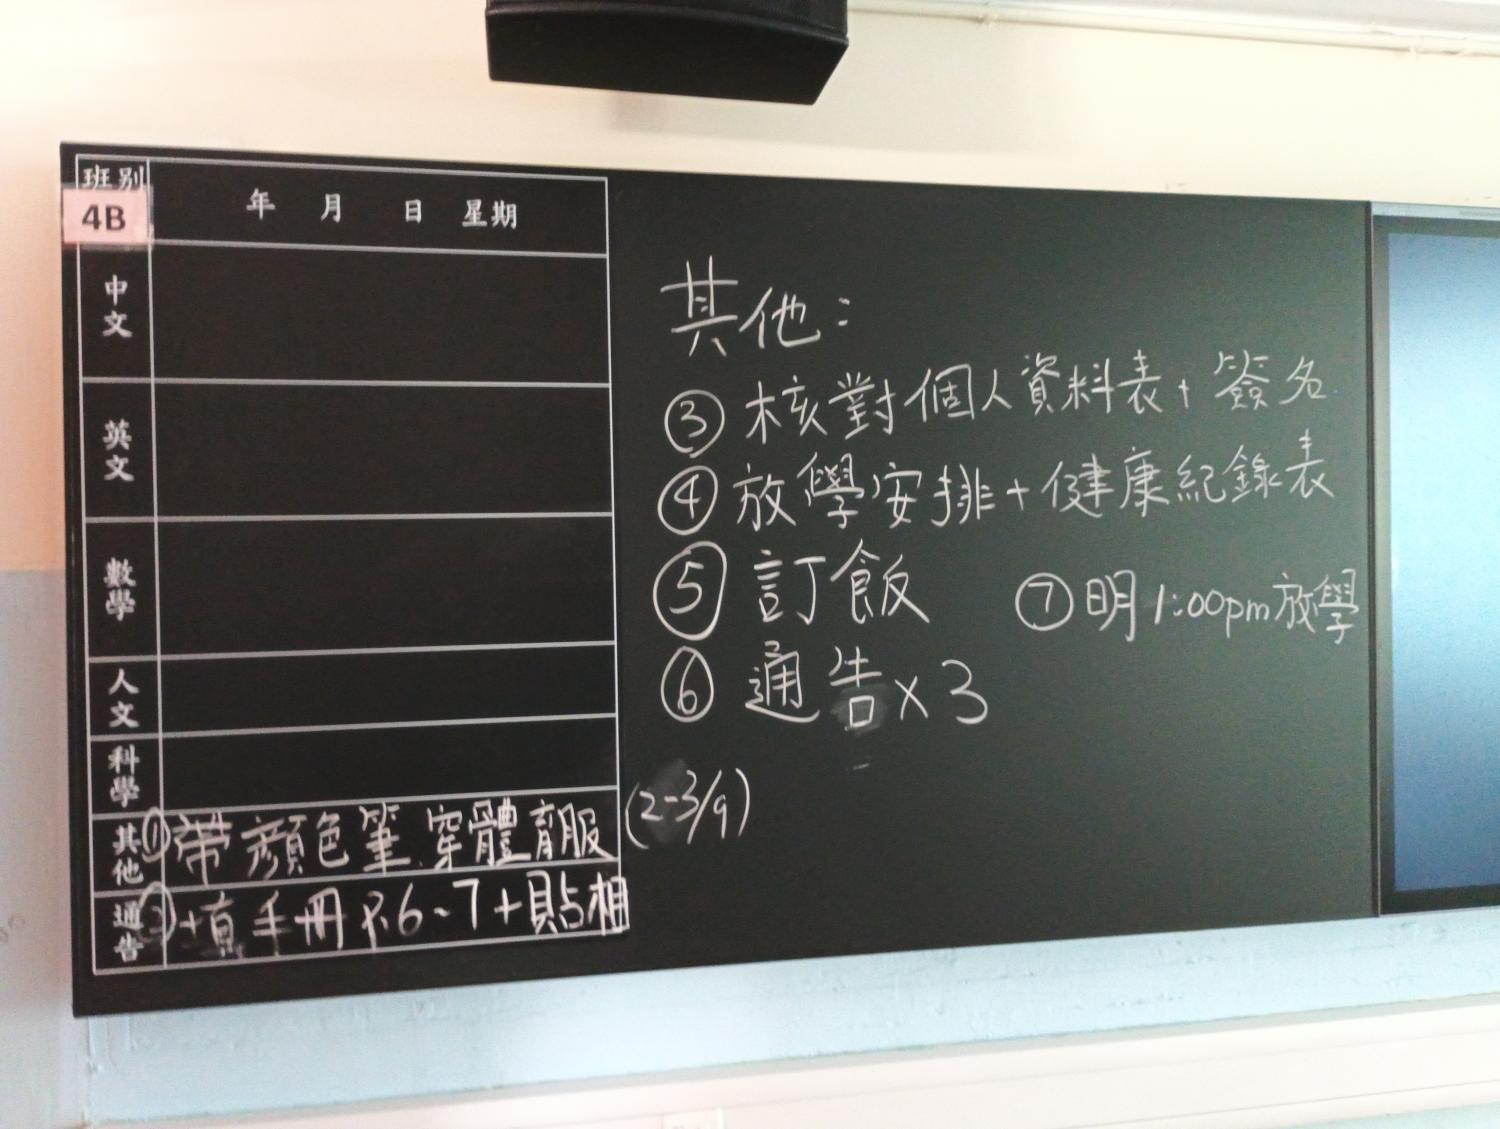 班別
4B
年 月 日 星期
中文
英文
數學
人文
科學
其他
①帶顏色筆 穿體育服 (2-3/9)
通告
②填手冊P.6-7+貼相
其他：
③ 核對個人資料表+簽名
④ 放學安排+健康紀錄表
⑤ 訂飯
⑦ 明1:00pm放學
⑥ 通告x3